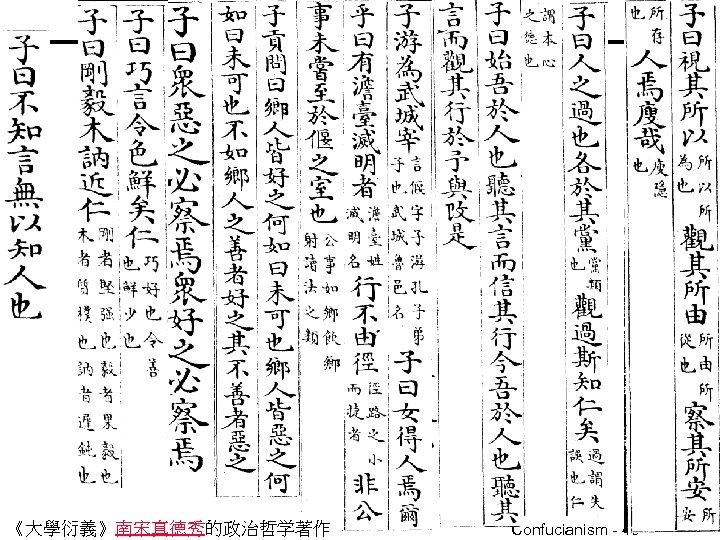 子曰視其所以所以所為也觀其所由所由所從也察其所安所安
所存也人焉廋哉廋隱也
子曰人之過也各於其黨黨類也觀過斯知仁矣過謂失誤也仁
謂本心之德也
子曰始吾於人也聽其言而信其行今吾於人也聽其
言而觀其行於予與改是
子游為武城宰言偃字子游孔子弟子也武城魯邑名子曰女得人焉爾
乎曰有澹臺滅明者澹臺姓滅明名行不由徑徑路之小而捷者非公
事未嘗至於偃之室也公事如鄉飲鄉射讀法之類
子貢問曰鄉人皆好之何如曰未可也鄉人皆惡之何
如曰未可也不如鄉人之善者好之其不善者惡之
子曰衆惡之必察焉衆好之必察焉
子曰巧言令色鮮矣仁巧好也令善也鮮少也
子曰剛毅木訥近仁剛者堅强也毅者果毅也木者質樸也訥者遲鈍也
子曰不知言無以知人也
《大學衍義》南宋真德秀的政治哲学著作
Confucianism -